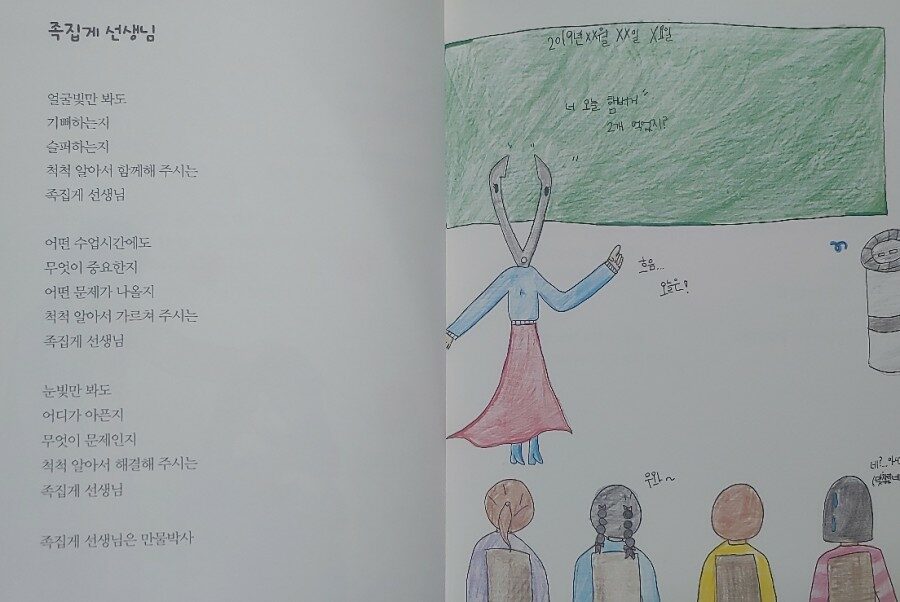 족집게 선생님
얼굴빛만 봐도
기뻐하는지
슬퍼하는지
척척 알아서 함께해 주시는
족집게 선생님
어떤 수업시간에도
무엇이 중요한지
어떤 문제가 나올지
척척 알아서 가르쳐 주시는
족집게 선생님
눈빛만 봐도
어디가 아픈지
무엇이 문제인지
척척 알아서 해결해 주시는
족집게 선생님
족집게 선생님은 만물박사
2019년 XX월 XX일 X요일
너 오늘 햄버거
2개 먹었지?
흐음...
오늘은?
우와~
네?...